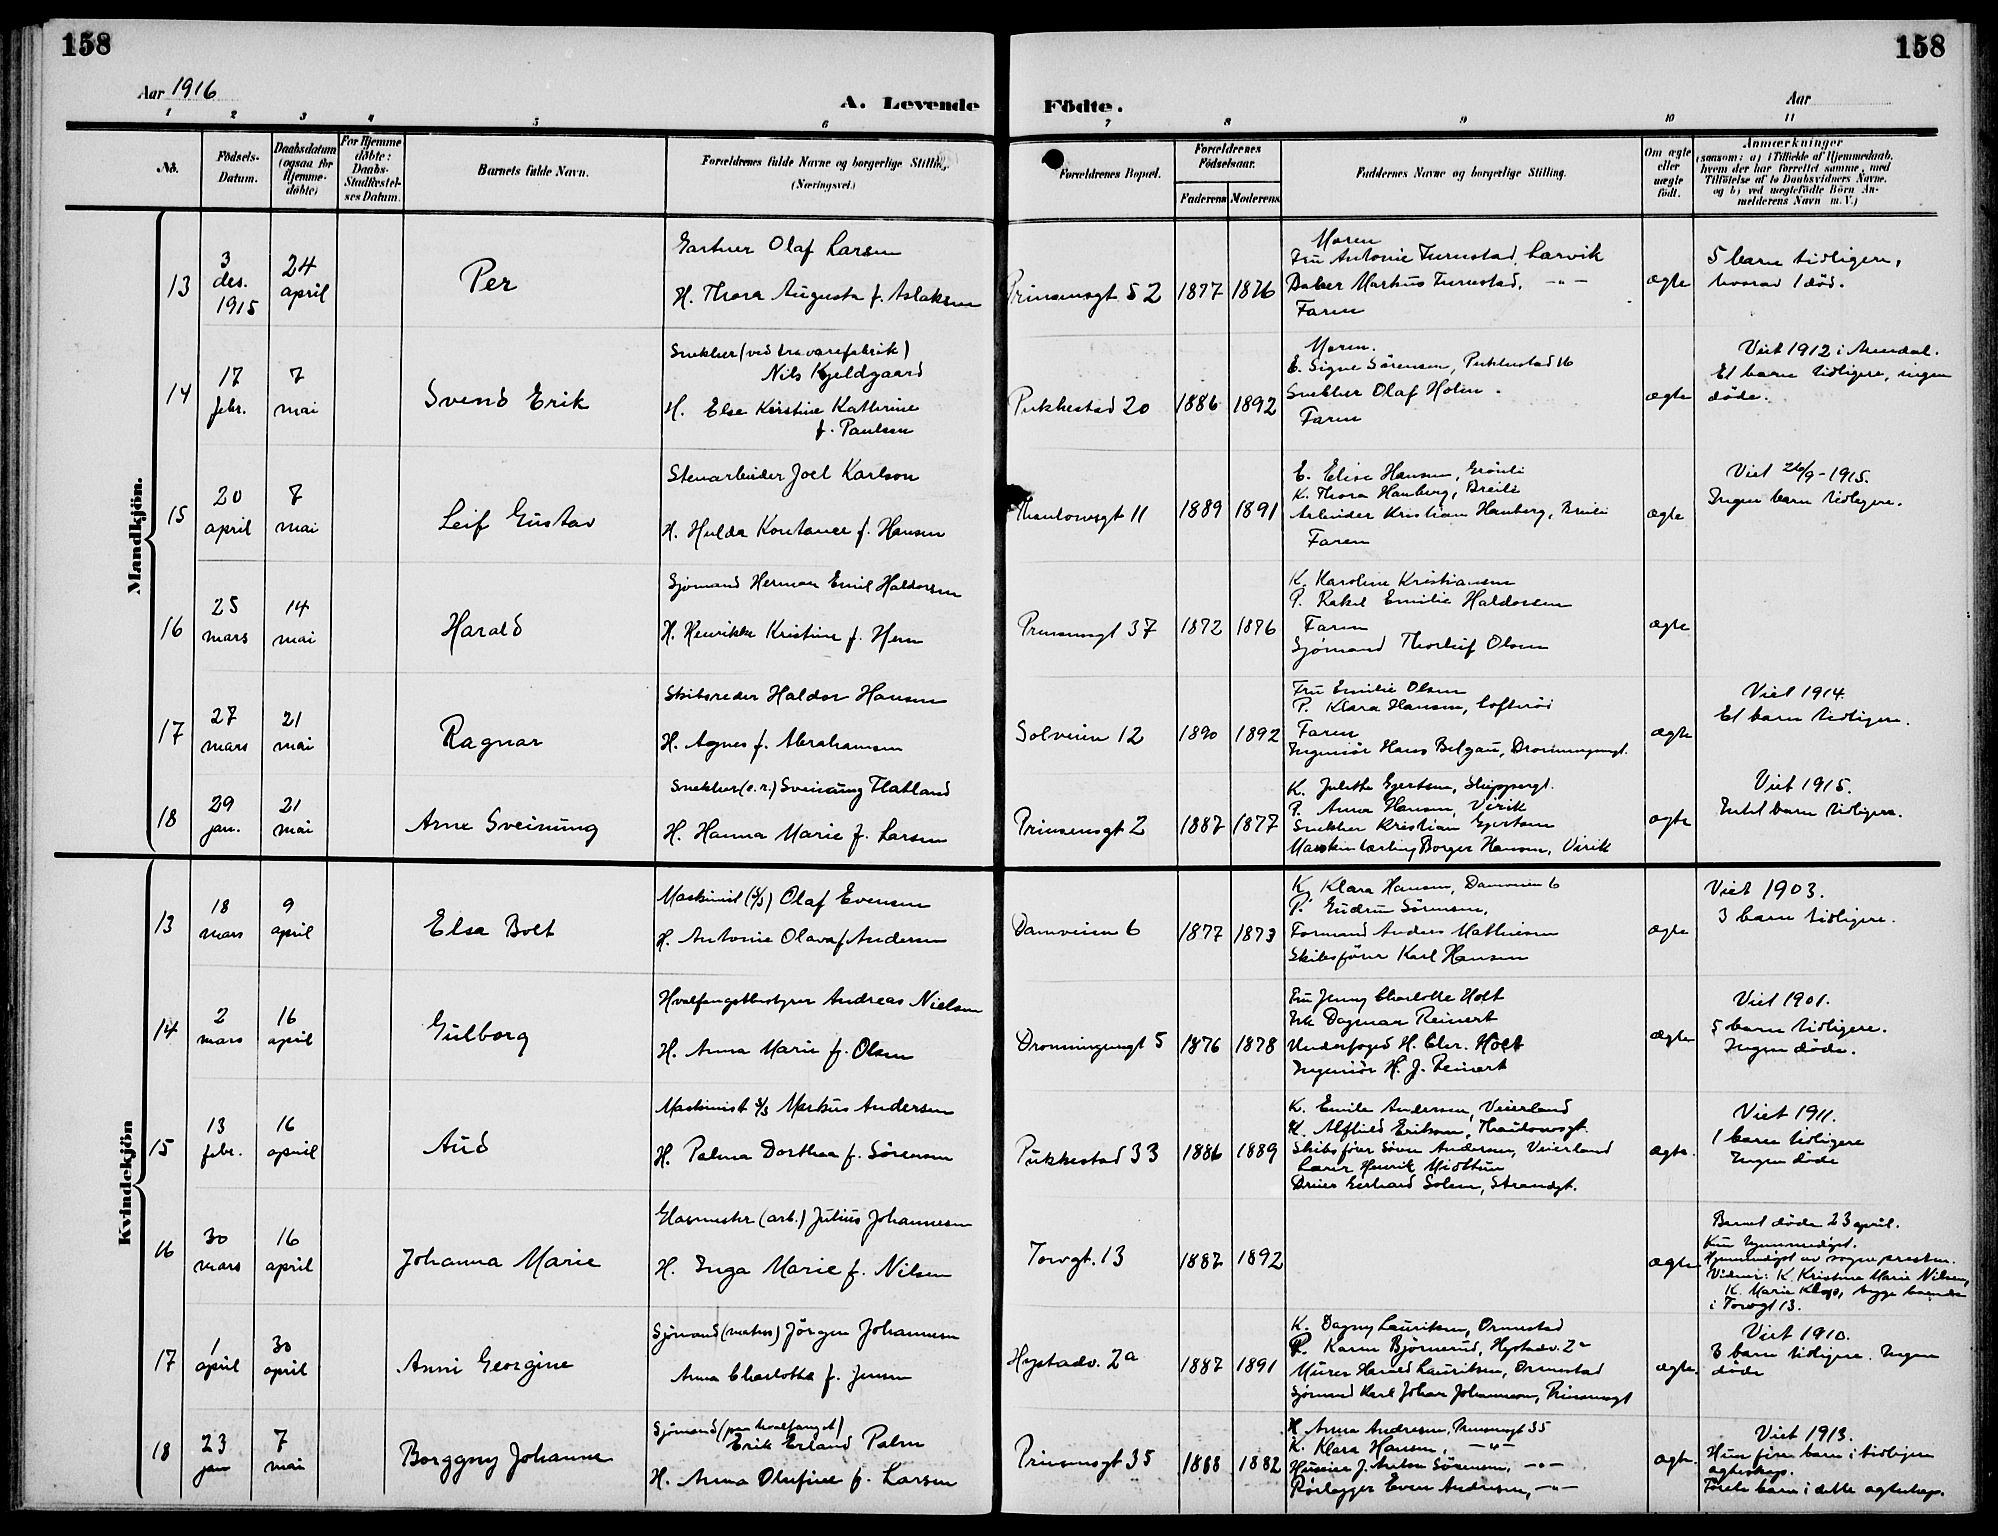 158
158
Aar 1916
A. Levende
Födte.
Aar
1 2 3 4 5 6 7 8 9 10 11
No.
Födsels-Datum.
Daabsdatum (ogsaa for Hjemme-döbte)
For Hjemmedöbte: Daabs-Stadfæstelses Datum.
Barnets fulde Navn.
Forældrenes fulde Navne og borgerlige Stilling
(Næringsvei.)
Forældrenes Bopæl.
Forældrenes Födselsaar.
Faderens Moderens
Faddernes Navne og borgerlige Stilling.
Om ægte eller uægte födt.
Anmærkninger
(saasom: a) i Tilfælde af Hjemmedaab, hvem der har forrettet samme, med Tilföielse af to Daabsvidners Navne, og b) ved uægtefödte Börn Anmelderens Navn m. V.)
Mandkjön.
13
3 des. 1915
24 april
Per
Gartner Olaf Larsen
H. Thora Augusta f. Aslaksen
Prinsensgt 52
1877 1876
Moren
Fru Antonie Furustad, Larvik
Baker Markus Furustad, -"-
Faren
ægte
5 barn tidligere,
hvorav 1 död.
14
17 febr.
7 mai
Svend Erik
Snekker (ved trævarefabrik)
Nils Kjeldgaard
H. Else Kirstine Kathrine
f. Paulsen
Pukkestad 20
1886 1892
Moren.
E. Signe Sörensen, Pukkestad 16
Snekker Olaf Holm
Faren
ægte
Viet 1912 i Arendal.
Et barn tidligere, ingen
døde.
15
20 april
8 mai
Leif Gustav
Stenarbeider Joel Karlson
H. Hulda Konstance f. Hansen
Thaulowsgt 11
1889 1891
E. Elise Hansen, Grönli
K. Thora Hamberg, Breili
Arbeider Kristian Hamberg, Breili
Faren
ægte
Viet 26/9-1915.
Ingen barn tidligere.
16
25 mars
14 mai
Harald
Sjömand Herman Emil Haldorsen
H. Henrikke Kristine f. Hem
Prinsensgt 37
1872 1876
K. Karoline Kristiansen
P. Rakel Emilie Haldorsen
Faren
Sjömand Thorleif Olsen
ægte
17
27 mars
21 mai
Ragnar
Skibsreder Haldor Hansen
H. Agnes f. Abrahamsen
Solveien 12
1890 1892
Fru Emilie Olsen
P. Klara Hansen, Lofteröi
Faren
Ingeniör Hans Belgau, Dronningensgt.
ægte
Viet 1914.
Et barn tidligere.
18
29 jan.
21 mai
Arne Sveinung
Snekker (e.r.) Sveinung Flatland
H. Hanna Marie f. Larsen
Prinsensgt 2
1887 1877
K. Julette Gjertsen, Skippergt.
P. Anna Hansen, Virik
Snekker Kristian Gjertsen
Maskinlærling Borger Hansen, Virik
ægte
Viet 1915.
Intet barn tidligere.
Kvindekjön
13
18 mars
9 april
Elsa Bolt
Maskinist (S/S) Olaf Evensen
H. Antonie Olava f Andersen
Damveien 6
1877 1873
K. Klara Hansen, Damveien 6
P. Gudrun Sörensen,
Formand Anders Mathiesen
Skibsförer Karl Hansen
ægte
Viet 1903.
3 barn tidligere.
14
2 mars
16 april
Gulborg
Hvalfangstbestyrer Andreas Nielsen
H. Anna Marie f. Olsen
Dronningensgt 5
1876 1878
Fru Jenny Charlotte Holt
Frk Dagmar Reinert
Underfoged H. Chr. Holt
Ingeniör H. J. Reinert
ægte
Viet 1901.
5 barn tidligere.
Ingen døde.
15
13 febr.
16 april
Aud
Maskinist S/S Markus Andersen
H. Palma Dorthea f. Sörensen
Pukkestad 33
1886 1889
K. Emilie Andersen, Veierland
K. Alfhild Eriksen, Thaulowsgt.
Skibsförer Sören Andersen, Veierland
Lærer Henrik Midttun
Dreier Gerhard Solem, Strandgt.
ægte.
Viet 1911.
1 barn tidligere
Ingen døde
16
30 mars
16 april
Johanna Marie
Glasmester (arb.) Julius Johannesen
H. Inga Marie f. Nilsen
Torvgt. 13
1887 1892
ægte
Barnet døde 23 april.
Kun hjemmedöpt.
Hjemmedöpt av sogneprestem.
Vidner: K. Kristine Marie Nilsen,
K. Marie Klop, begge boende
i Torvgt 13.
17
1 april
30 april
Anni Georgine
Sjömand (matros) Jörgen Johannesen
Anna Charlotte f. Jensen
Hystadv. 2a
1887 1891
K. Dagny Lauritsen, Ormestad
P. Karen Björnerud, Hystadv. 2a
Murer Harald Lauritsen, Ormestad
Sjömand Karl Johan Johannesen, Prinsensgt
ægte.
Viet 1910.
3 barn tidligere. Ingen
døde
18
23 jan
7 mai
Borggny Johanne
Sjömand (paa hvalfangst)
Erik Erland Palm
H. Anna Olufine f. Larsen
Prinsensgt 35
1888 1882
H. Anna Andresen, Prinsensgt 35
K. Klara Hansen, -"-
Huseier J. Anton Sörensen, -"-
Rörlegger Even Andresen, -"-
ægte.
Viet 1913.
Hun fire barn i tidligere
ægteskap.
Förste barn i dette ægteskap.